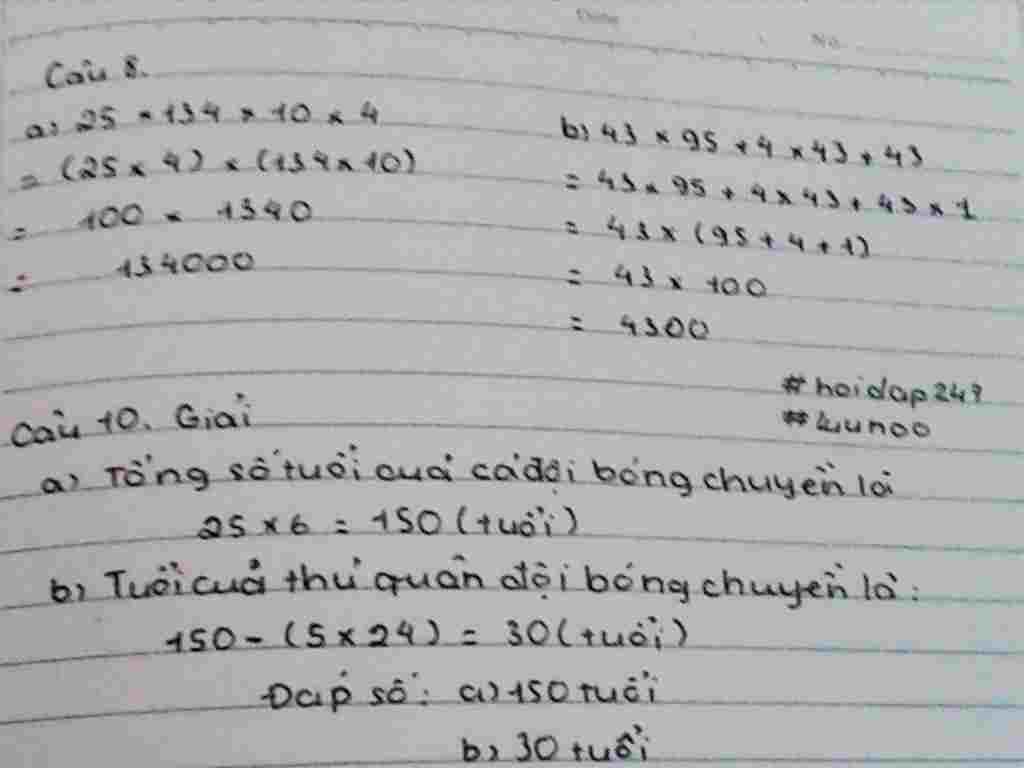 No.
Câu 8.
a) 25 × 134 × 10 × 4
= (25 × 4) × (134 × 10)
= 100 × 1340
= 134000
b) 43 × 95 + 4 × 43 + 43
= 43 × 95 + 4 × 43 + 43 × 1
= 43 × (95 + 4 + 1)
= 43 × 100
= 4300
#hoidap247
Câu 10. Giải
a) Tổng số tuổi cuả cả đội bóng chuyền là
25 × 6 = 150 (tuổi)
b) Tuổi cuả thủ quân đội bóng chuyền là:
150 - (5 × 24) = 30 (tuổi)
Đáp số: a) 150 tuổi
b) 30 tuổi